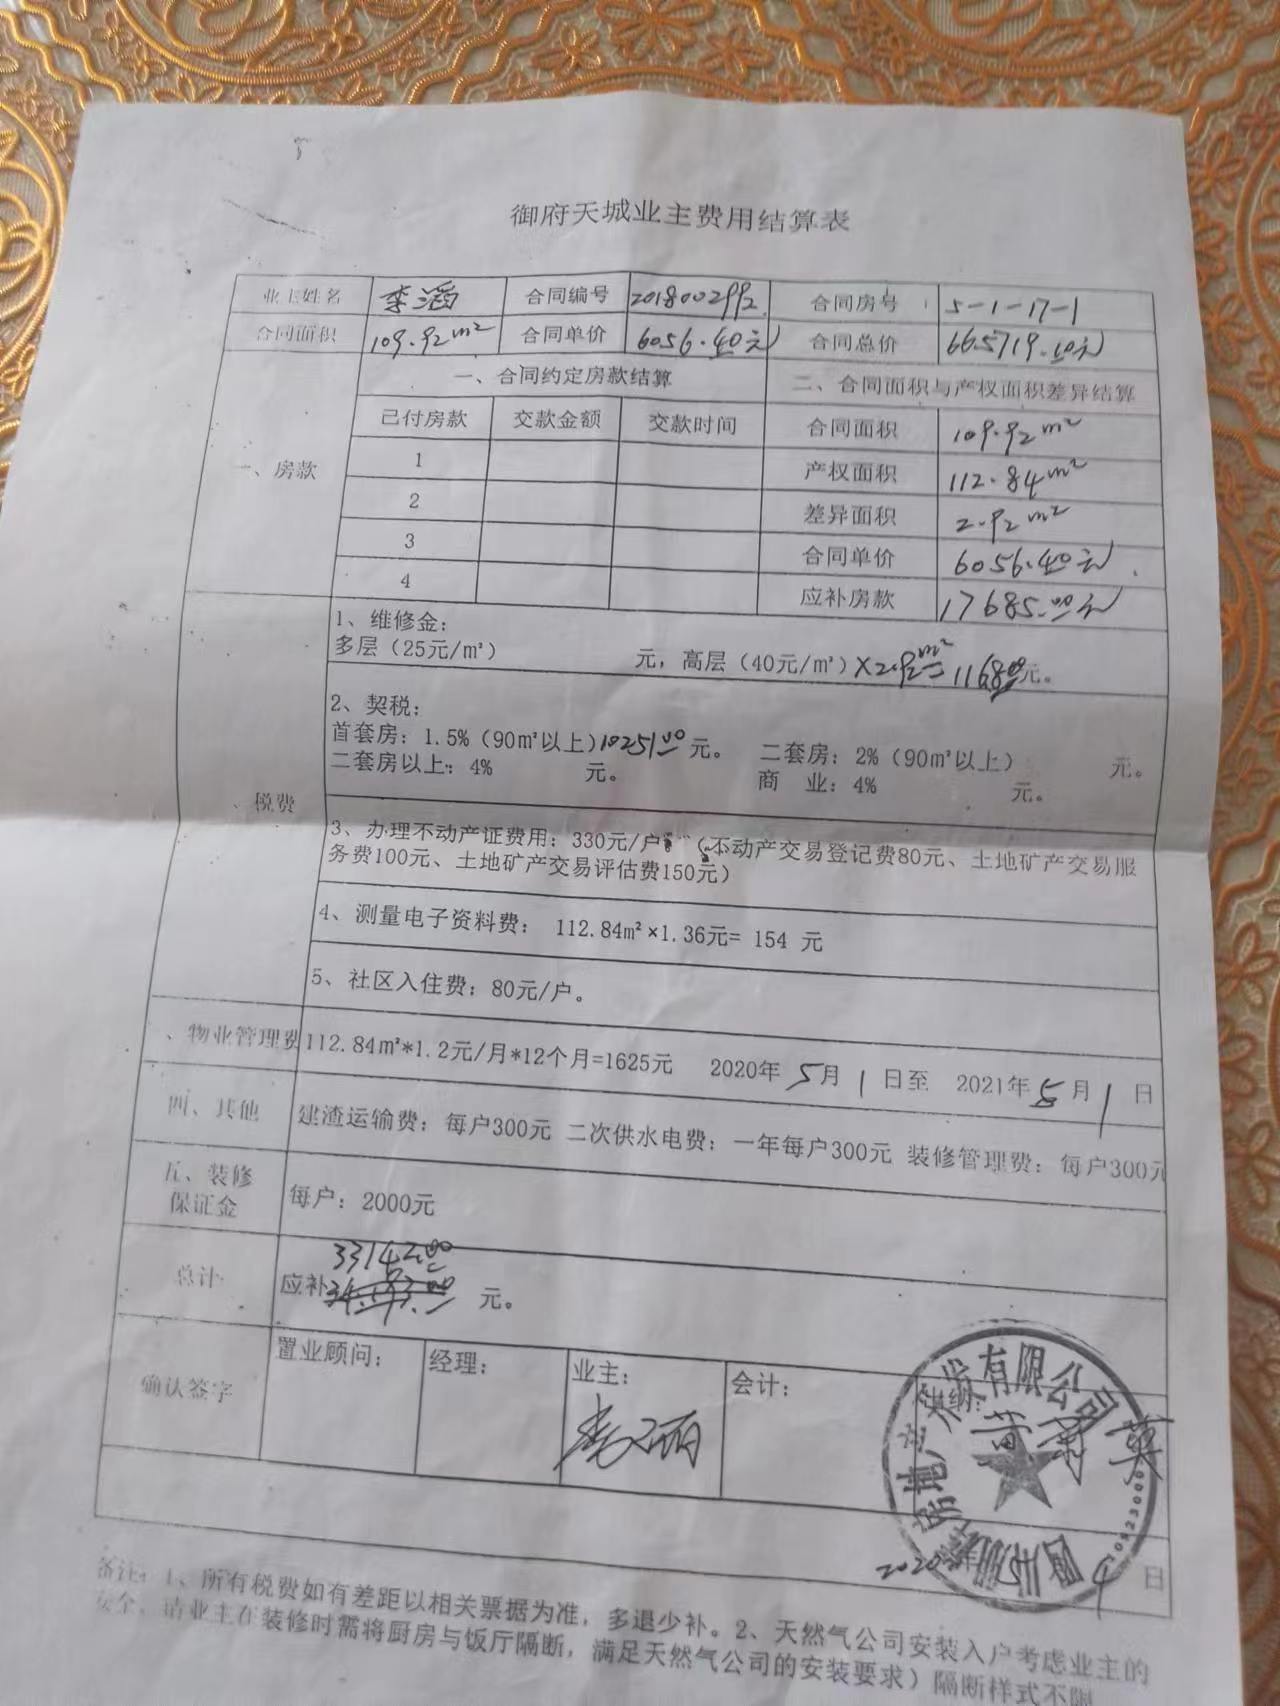 御府天城业主费用结算表
业主姓名 李滔 合同编号 2018002992 合同房号 5-1-17-1
合同面积 109.92m² 合同单价 6056.40元 合同总价 665719.10元
一、房款 一、合同约定房款结算 二、合同面积与产权面积差异结算
已付房款 交款金额 交款时间 合同面积 109.92m²
1 产权面积 112.84m²
2 差异面积 2.92m²
3 合同单价 6056.40元
4 应补房款 17685.00元
税费
1、维修金:
多层(25元/㎡) 元，高层(40元/㎡)×2.92m²=116800元。
2、契税:
首套房: 1.5%(90㎡以上)10251.00元。 二套房: 2%(90㎡以上) 元。
二套房以上: 4% 元。 商 业: 4% 元。
3、办理不动产证费用: 330元/户 (不动产交易登记费80元、土地矿产交易服
务费100元、土地矿产交易评估费150元)
4、测量电子资料费: 112.84m²×1.36元= 154 元
5、社区入住费: 80元/户。
、物业管理费 112.84m²*1.2元/月*12个月=1625元 2020年5月1日至 2021年5月1日
四、其他 建渣运输费: 每户300元 二次供水电费: 一年每户300元 装修管理费: 每户300元
五、装修
保证金 每户: 2000元
总计 33142.00
应补 元。
确认签字 置业顾问: 经理: 业主: 会计: 出纳:
房地产 有限公司
2020年 4日
备注: 1、所有税费如有差距以相关票据为准，多退少补。2、天然气公司安装入户考虑业主的
安全，请业主在装修时需将厨房与饭厅隔断，满足天然气公司的安装要求) 隔断样式不限